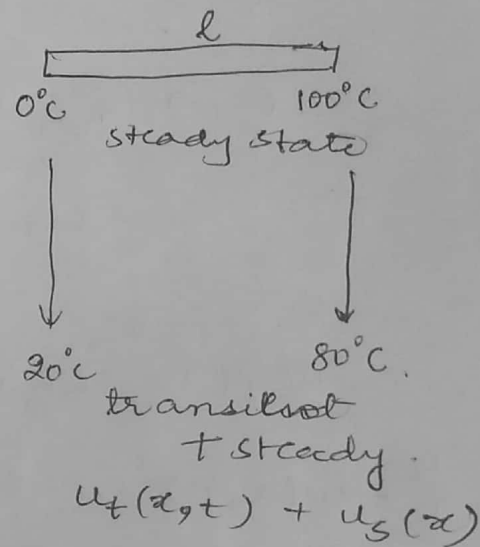 l
0°C 100°C
steady state
20°C 80°C.
transilsot
+ steady.
u_t(x,t) + u_s(x)